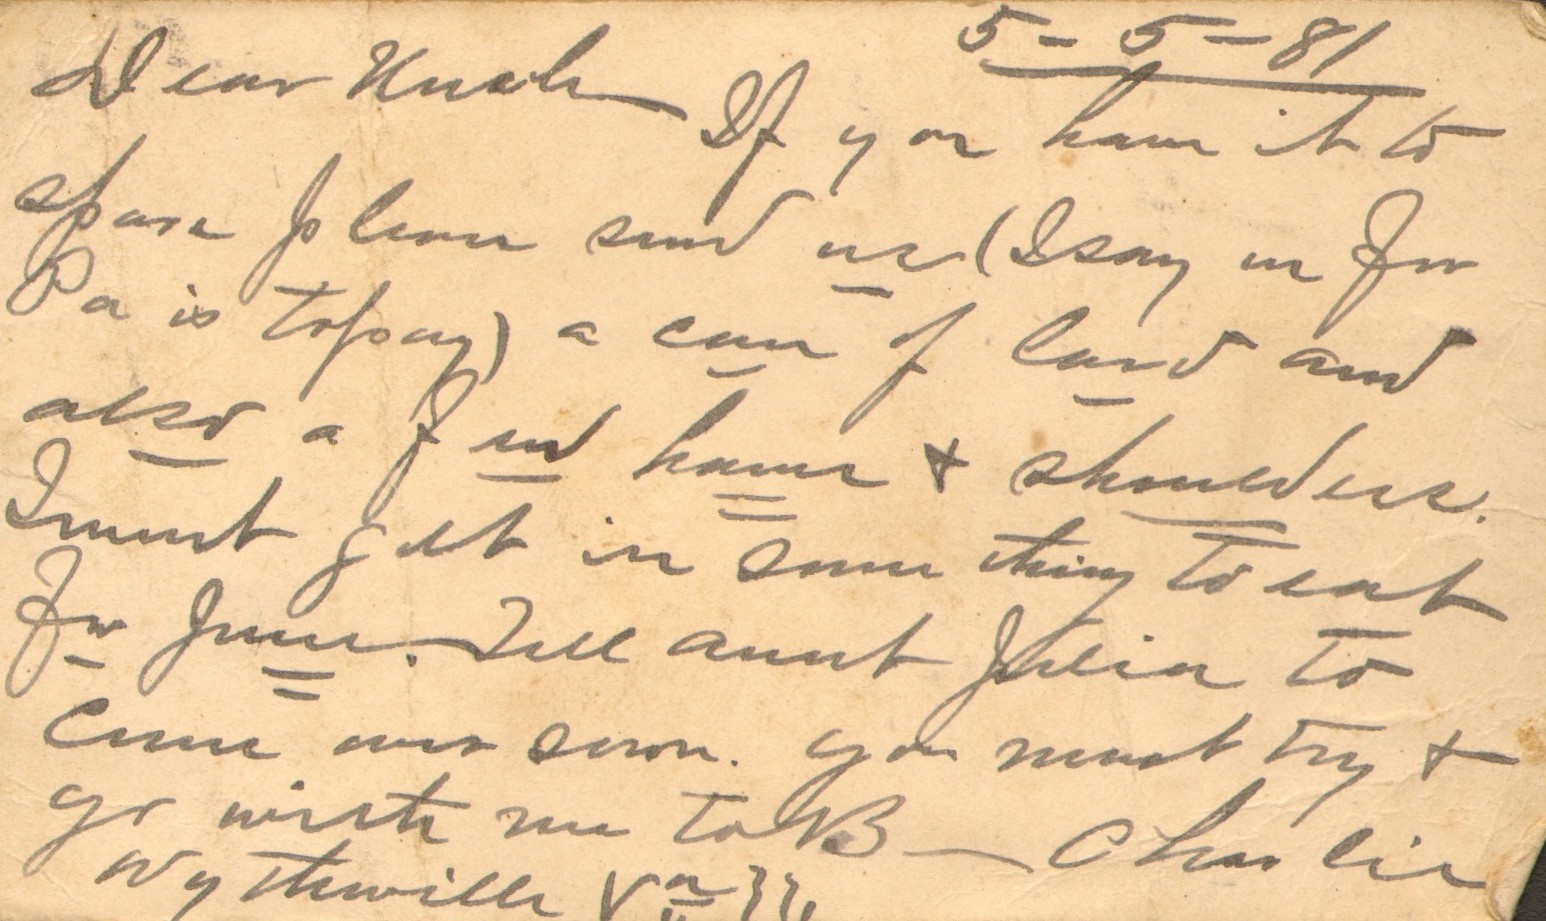 5-5-81
Dear Uncle If you have it to
spare please send us (I say us for
Pa is to pay) a can of lard and
also a few hams & shoulders.
I must get in some thing to eat
for June. Tell aunt Julia to
come over soon. you must try &
go with me to B— Charlie
Wytheville Va